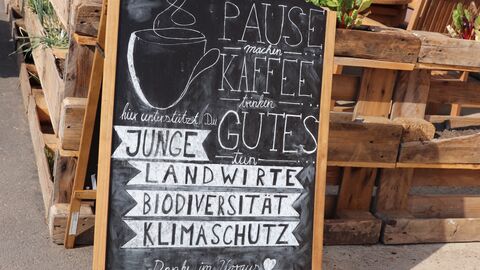 PAUSE
machen
KAFFEE
trinken
hier unterstützt Du
GUTES
tun
JUNGE
LANDWIRTE
BIODIVERSITÄT
KLIMASCHUTZ
Danke im Voraus